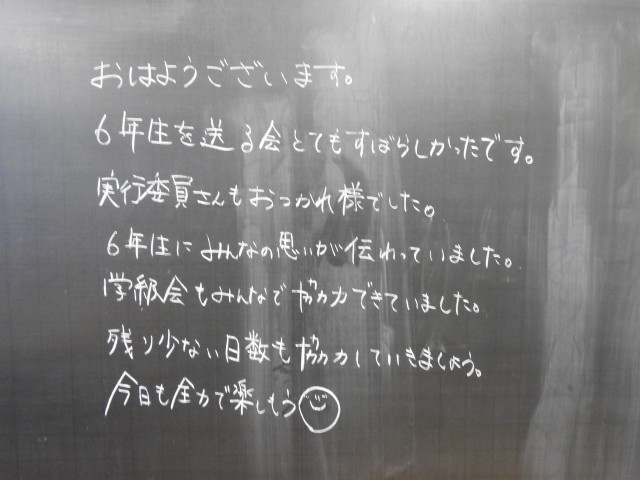 おはようございます。
6年生を送る会とてもすばらしかったです。
実行委員さんもおつかれ様でした。
6年生にみんなの思いが伝わっていました。
学級会もみんなで協力できていました。
残り少ない日数も協力していきましょう。
今日も全力で楽しもう